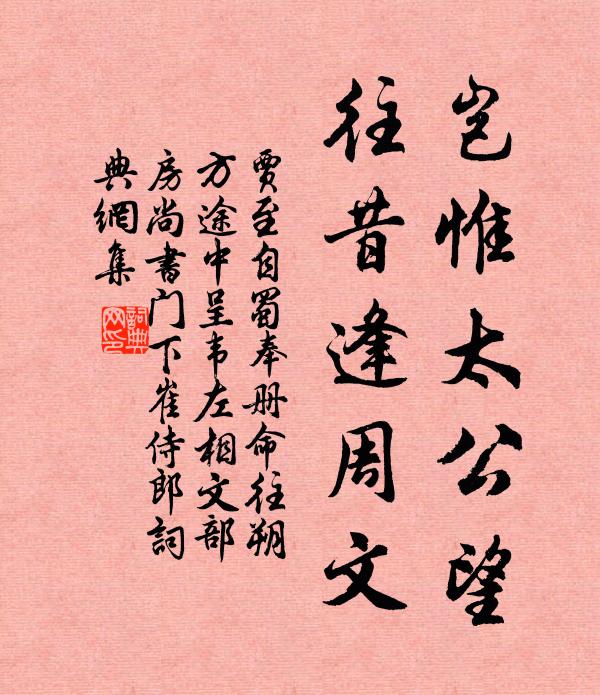 豈惟太公望
往昔逢周文
賈至自蜀奉册命往朔
方途中呈韦左相文部
房尚書门下崔侍郎詞
典網集
詞典
网印